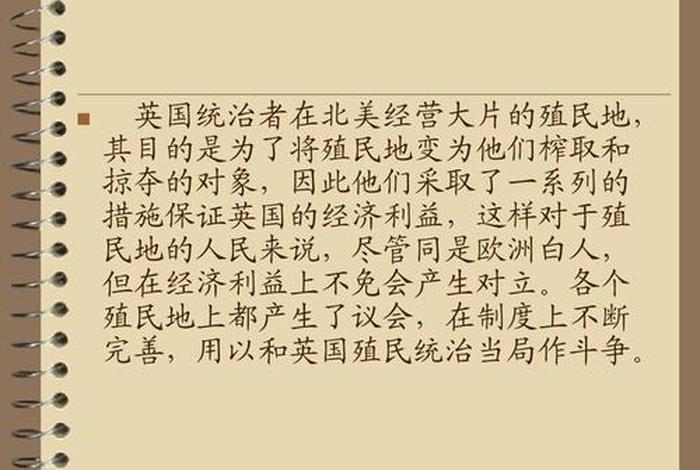 英国统治者在北美经营大片的殖民地，
其目的是为了将殖民地变为他们榨取和
掠夺的对象，因此他们采取了一系列的
措施保证英国的经济利益，这样对于殖
民地的人民来说，尽管同是欧洲白人，
但在经济利益上不免会产生对立。各个
殖民地上都产生了议会，在制度上不断
完善，用以和英国殖民统治当局作斗争。